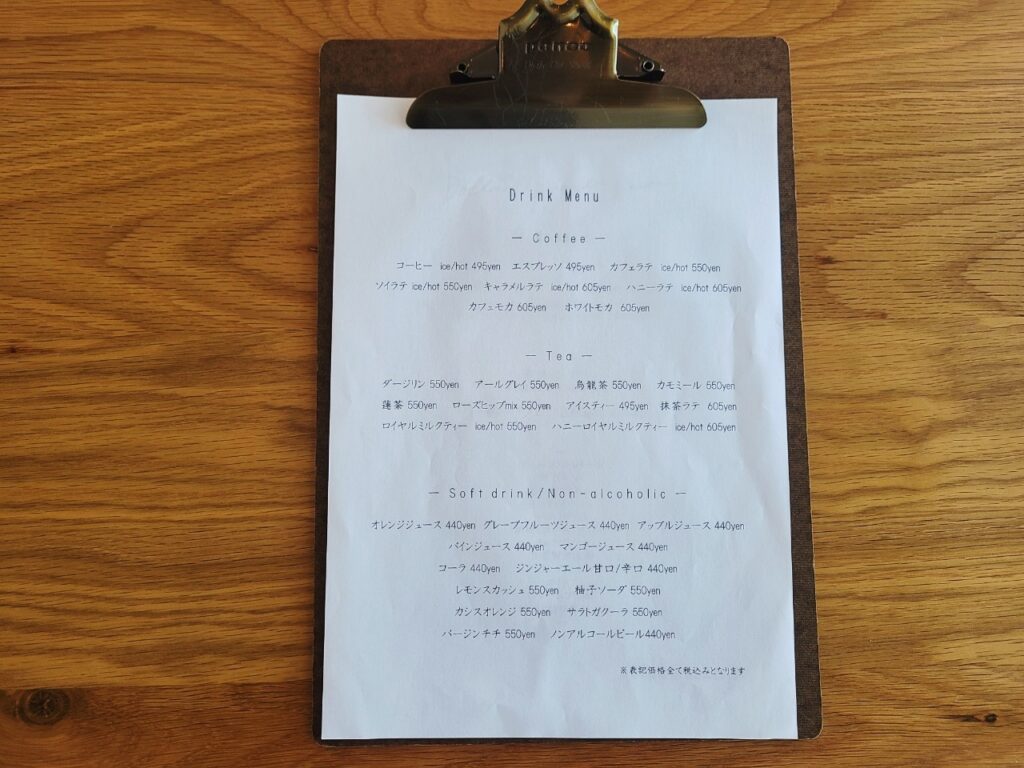 Drink Menu
— Coffee —
コーヒー ice/hot 495yen エスプレッソ 495yen カフェラテ ice/hot 550yen
ソイラテ ice/hot 550yen キャラメルラテ ice/hot 605yen ハニーラテ ice/hot 605yen
カフェモカ 605yen ホワイトモカ 605yen
— Tea —
ダージリン 550yen アールグレイ 550yen 烏龍茶 550yen カモミール 550yen
蓮茶 550yen ローズヒップmix 550yen アイスティー 495yen 抹茶ラテ 605yen
ロイヤルミルクティー ice/hot 550yen ハニーロイヤルミルクティー ice/hot 605yen
— Soft drink/Non-alcoholic —
オレンジジュース 440yen グレープフルーツジュース 440yen アップルジュース 440yen
パインジュース 440yen マンゴージュース 440yen
コーラ 440yen ジンジャーエール甘口/辛口 440yen
レモンスカッシュ 550yen 柚子ソーダ 550yen
カシスオレンジ 550yen サラトガクーラ 550yen
バージンチチ 550yen ノンアルコールビール440yen
※表記価格全て税込みとなります